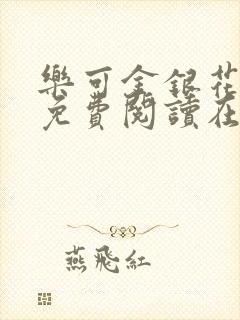 樂可金銀花
免費閱讀在
燕飛紅